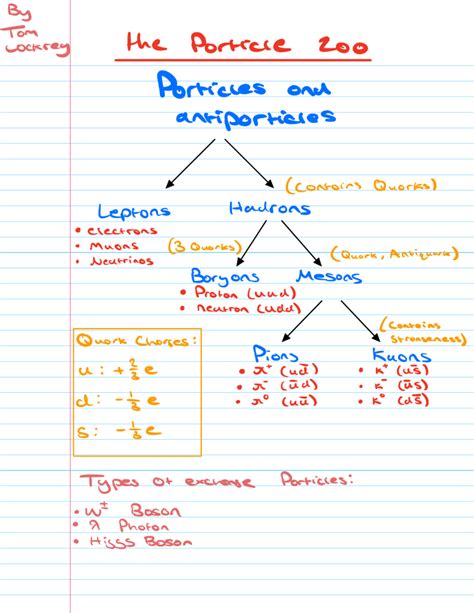 By
Tom
Lockrey
The Particle Zoo
Particles and
antiparticles
(Contains Quarks)
Leptons
Hadrons
• electrons
• Muons
• Neutrinos
(3 Quarks)
(Quark, Antiquark)
Baryons
Mesons
• Proton (uud)
• neutron (udd)
(Contains
Strangeness)
Quark Charges:
u: +2/3 e
d: -1/3 e
s: -1/3 e
Pions
• π⁺ (ud̄)
• π⁻ (ūd)
• π⁰ (uū)
Kaons
• K⁺ (us̄)
• K⁻ (ūs)
• K⁰ (ds̄)
Types of exchange Particles:
• W± Boson
• λ Photon
• Higgs Boson